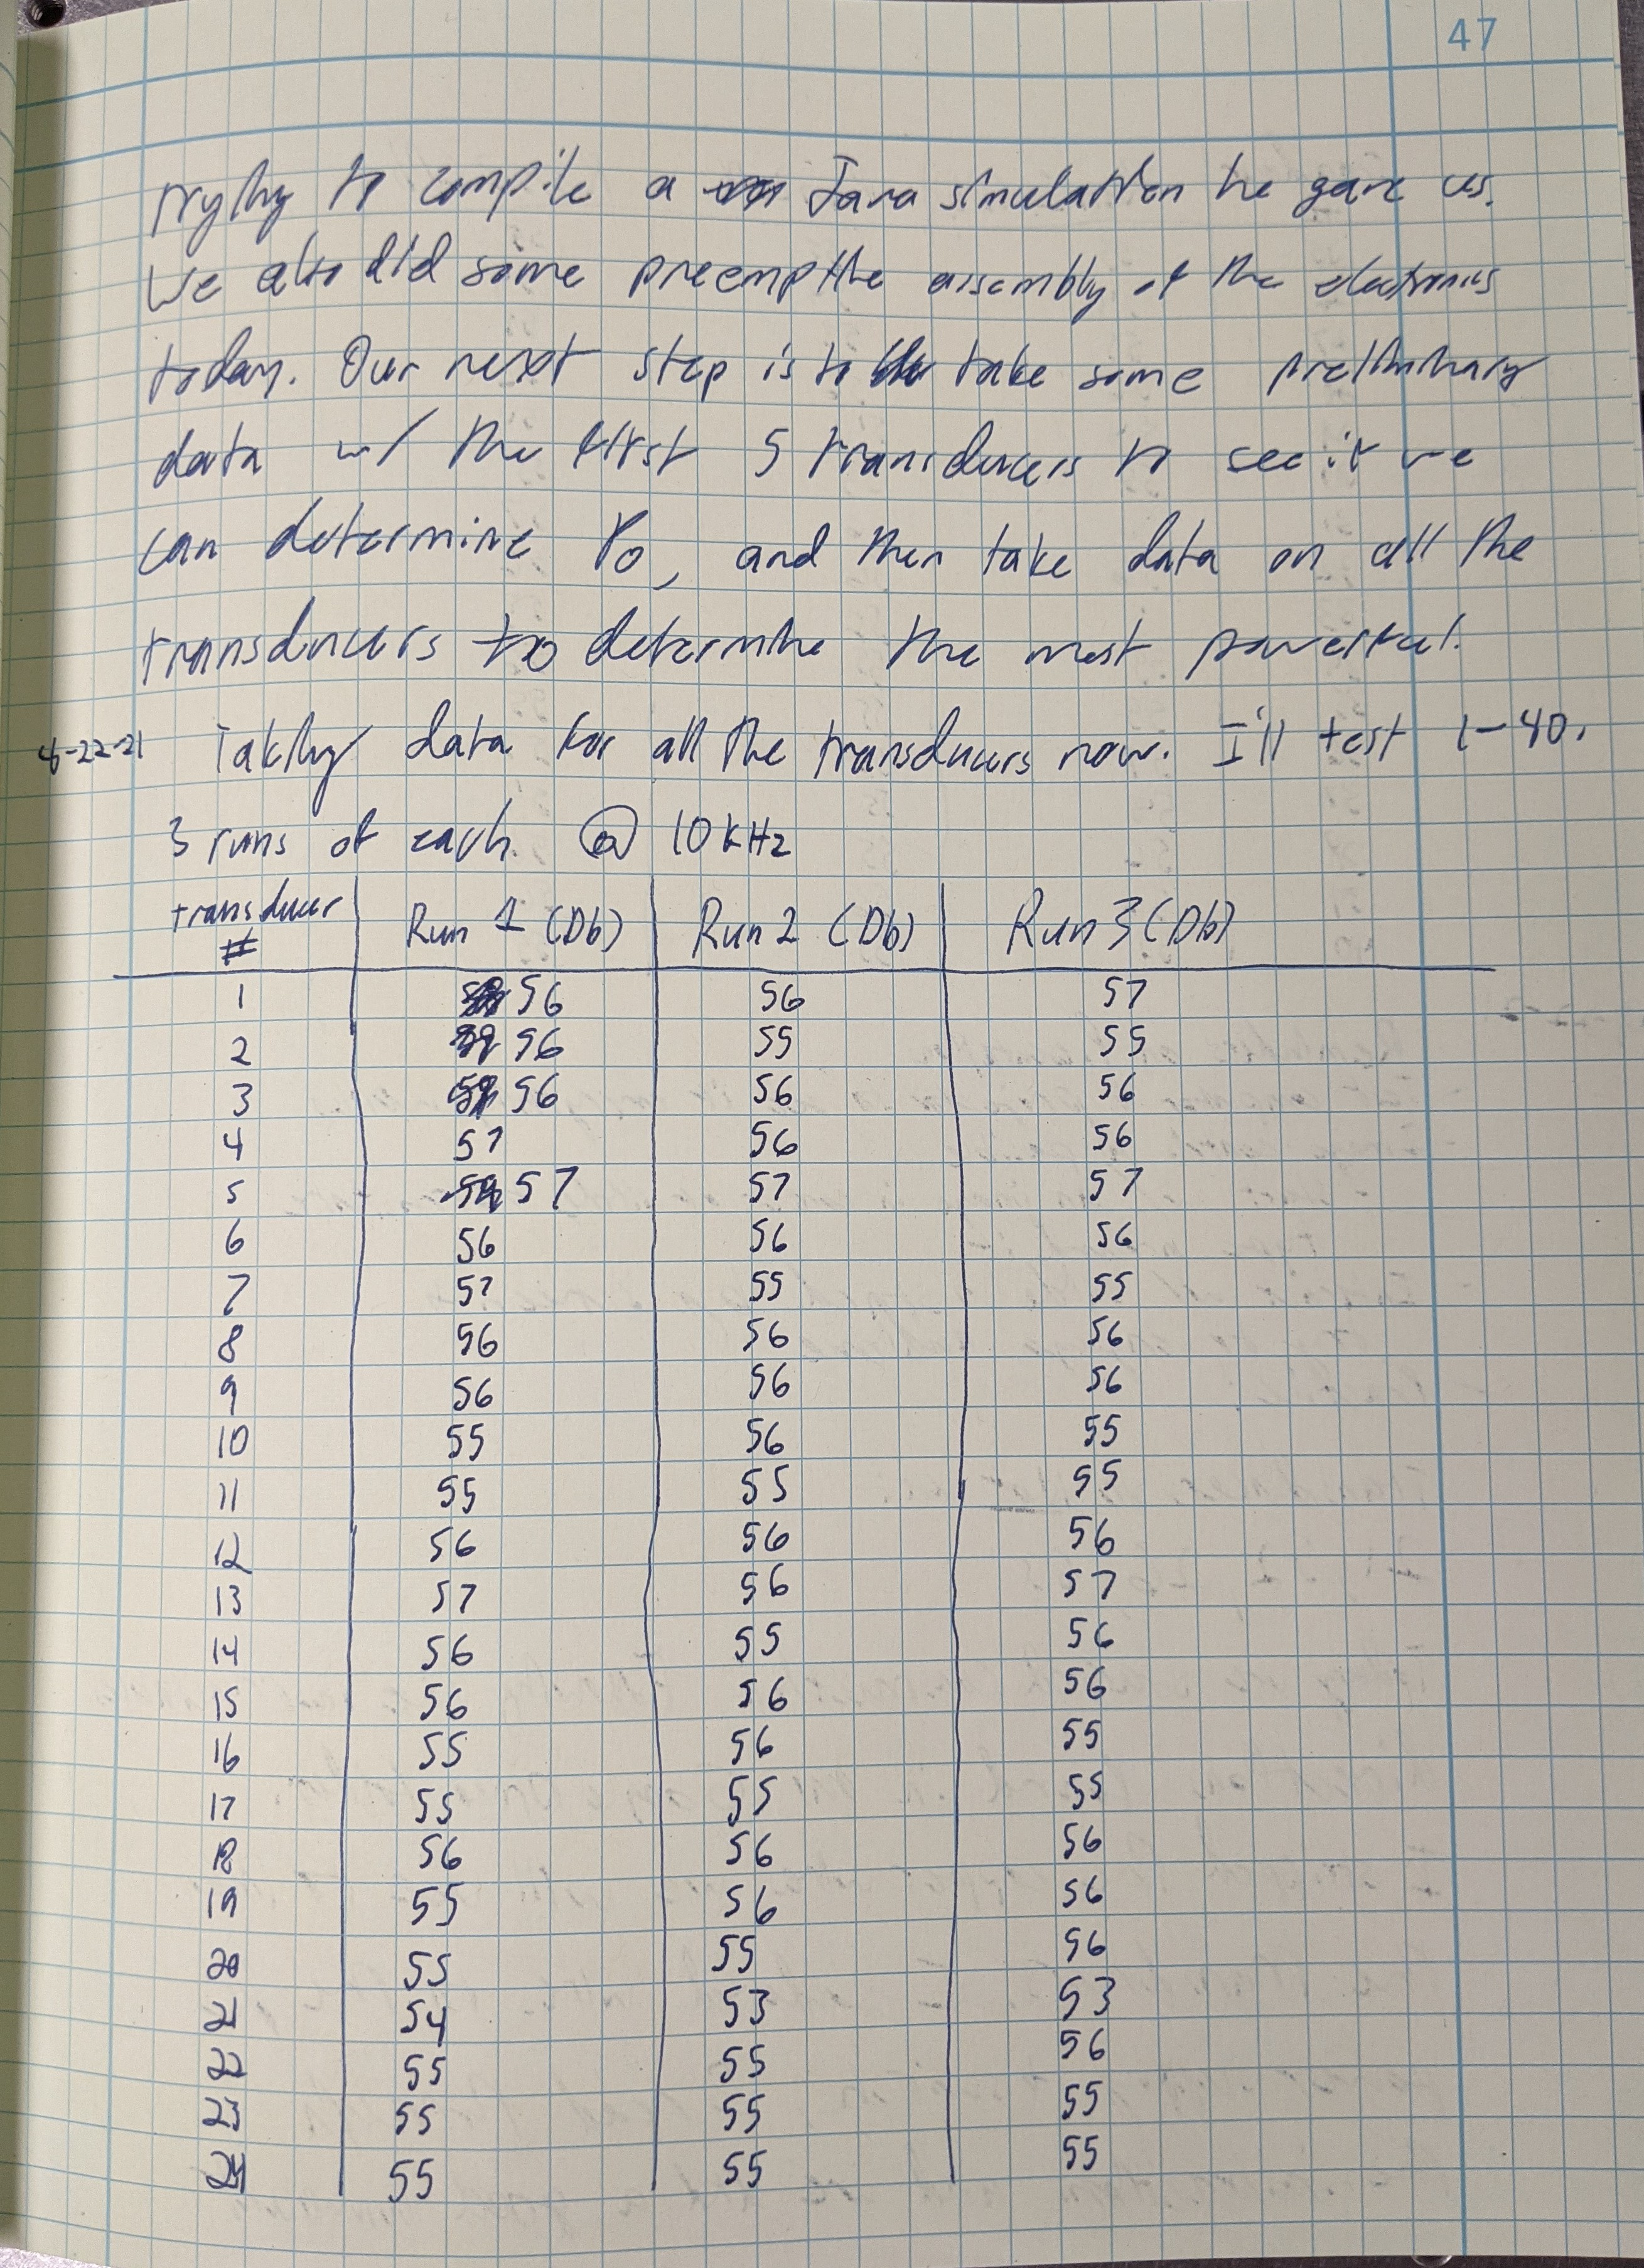 47
trying to compile a Java simulation he gave us.
We also did some preemptive assembly of the electronics
today. Our next step is to take some preliminary
data w/ the first 5 transducers to see if we
can determine P0, and then take data on all the
transducers to determine the most powerful.
4-22-21 Taking data for all the transducers now. I'll test 1-40.
3 runs of each @ 10 kHz
transducer # Run 1 (Db) Run 2 (Db) Run 3 (Db)
1 56 56 57
2 56 55 55
3 56 56 56
4 57 56 56
5 57 57 57
6 56 56 56
7 57 55 55
8 56 56 56
9 56 56 56
10 55 56 55
11 55 55 55
12 56 56 56
13 57 56 57
14 56 55 56
15 56 56 56
16 55 56 55
17 55 55 55
18 56 56 56
19 55 56 56
20 55 55 56
21 54 53 53
22 55 55 56
23 55 55 55
24 55 55 55